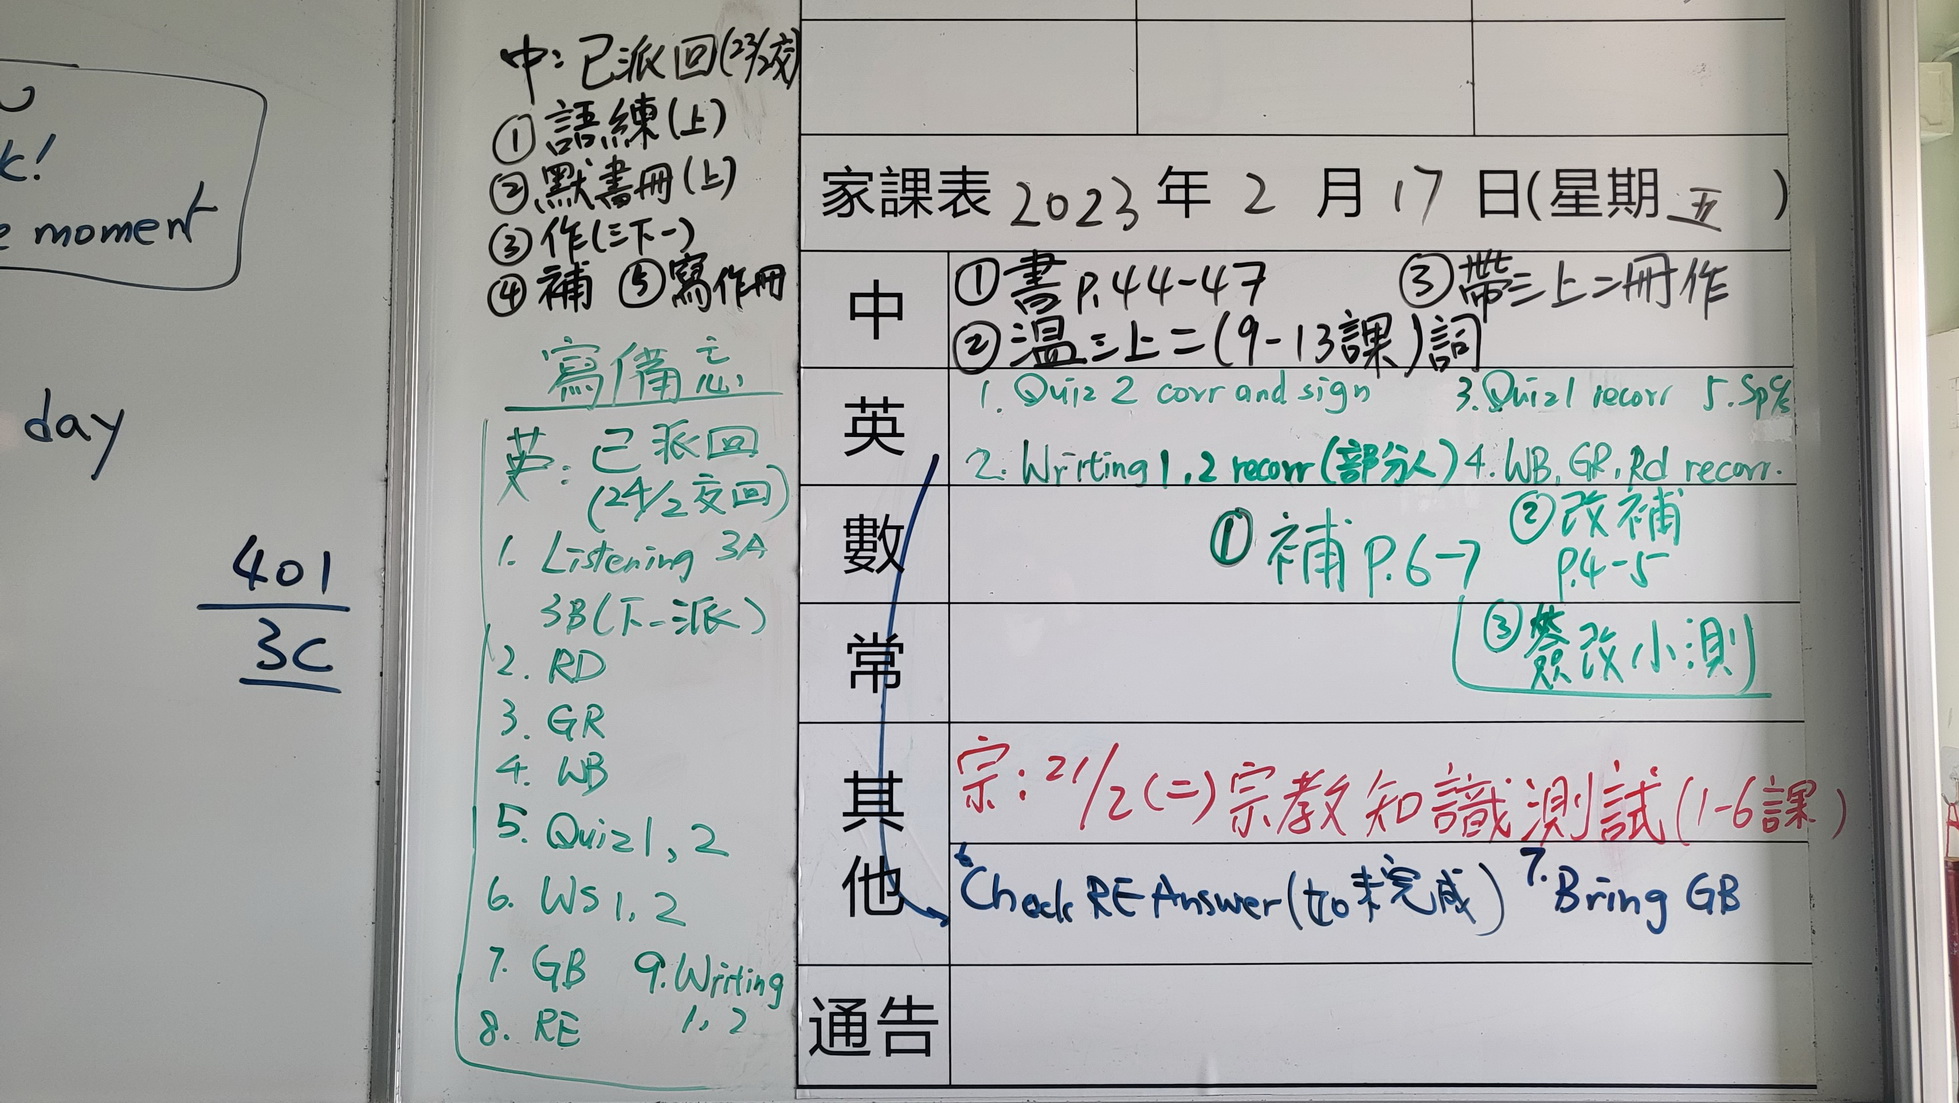 k!
moment
day
401
3C
中：已派回(23/2交)
①語練(上)
②默書冊(上)
③作(三下一)
④補 ⑤寫作冊
寫備忘
英：已派回
(24/2交回)
1. Listening 3A
3B(下一派)
2. RD
3. GR
4. WB
5. Quiz1, 2
6. WS 1, 2
7. GB 9. Writing
1, 2
8. RE
家課表 2023 年 2 月 17 日(星期 五 )
中
①書 p.44-47 ③帶三上二冊作
②溫三上二(9-13課)詞
英
1. Quiz 2 corr and sign 3. Quiz1 recorr 5. Sp
2. Writing 1, 2 recorr (部分人) 4. WB, GR, Rd recorr.
數
①補 P.6-7 ②改補
P.4-5
常
③簽改小測
其他
宗：21/2(二)宗教知識測試(1-6課)
6. Check RE Answer (如未完成) 7. Bring GB
通告